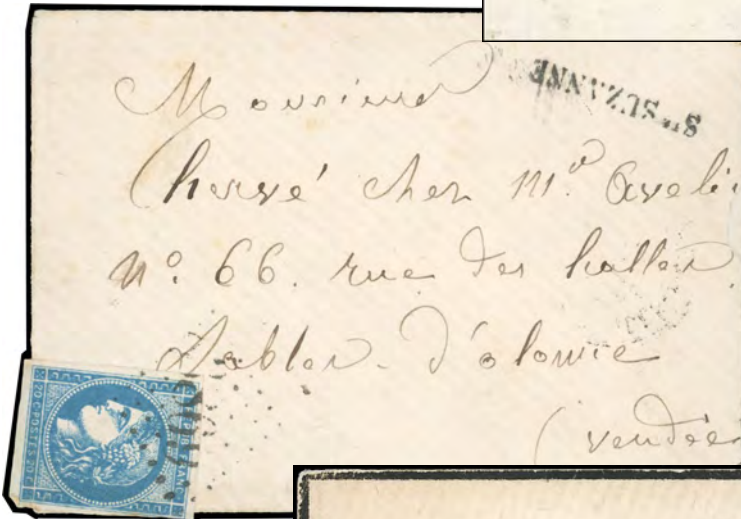 Ste SUZANNE
Monsieur
Chervé chez Me Aveli
N° 66. rue des halles
Sables-d'olonne
(vendée
20 C POSTES 20 C
REPUB FRANC